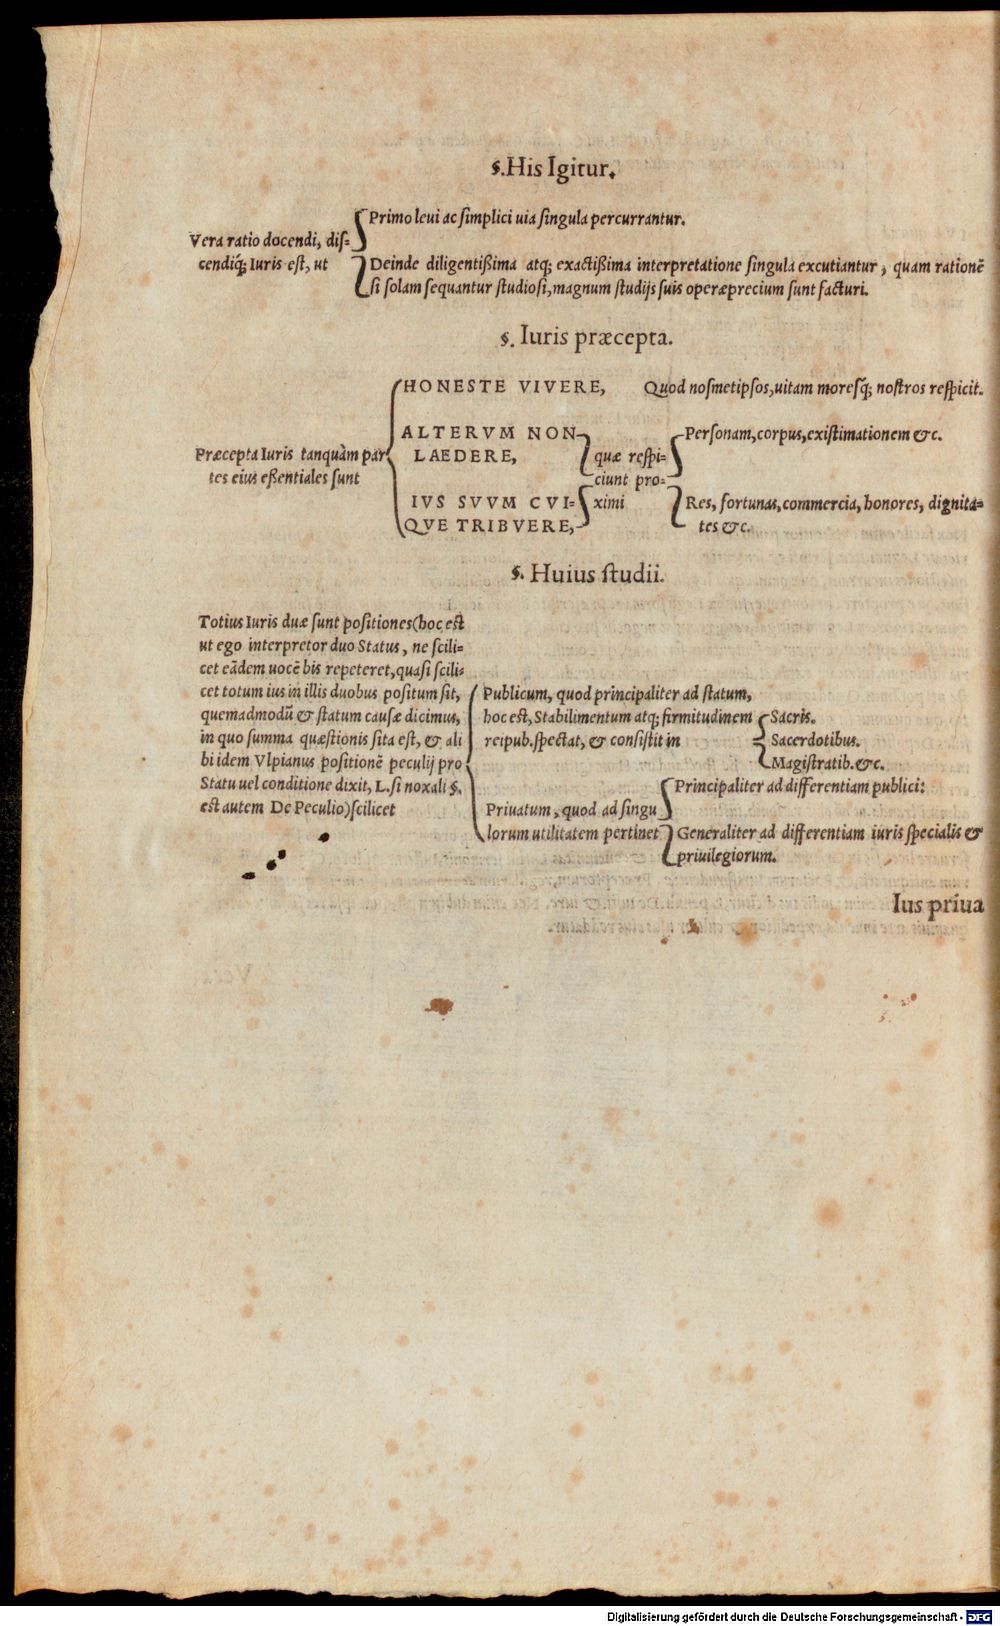 §. His Igitur.
Primo leui ac ſimplici uia ſingula percurrantur.
Vera ratio docendi, diſ-
cendiq; Iuris eſt, ut
Deinde diligentißima atq; exactißima interpretatione ſingula excutiantur, quam rationē
ſi ſolam ſequantur ſtudioſi, magnum ſtudijs ſuis operæprecium ſunt facturi.
§. Iuris præcepta.
HONESTE VIVERE, Quod noſmetipſos, uitam moreſq; noſtros reſpicit.
Præcepta Iuris tanquàm par
tes eius eßentiales ſunt
ALTERVM NON
LAEDERE,
IVS SVVM CVI-
QVE TRIBVERE,
quæ reſpi-
ciunt pro-
ximi
Perſonam, corpus, exiſtimationem &c.
Res, fortunas, commercia, honores, dignita-
tes &c.
§. Huius ſtudii.
Totius Iuris duæ ſunt poſitiones (hoc eſt
ut ego interpretor duo Status, ne ſcili-
cet eādem uocē bis repeteret, quaſi ſcili-
cet totum ius in illis duobus poſitum ſit,
quemadmodū & ſtatum cauſæ dicimus,
in quo ſumma quæſtionis ſita eſt, & ali
bi idem Vlpianus poſitionē peculij pro
Statu uel conditione dixit, L. ſi noxali §.
eſt autem De Peculio) ſcilicet
Publicum, quod principaliter ad ſtatum,
hoc eſt, Stabilimentum atq; firmitudinem
reipub. ſpectat, & conſiſtit in
Sacris.
Sacerdotibus.
Magiſtratib. &c.
Priuatum, quod ad ſingu
lorum utilitatem pertinet
Principaliter ad differentiam publici:
Generaliter ad differentiam iuris ſpecialis &
priuilegiorum.
Ius priua
Digitalisierung gefördert durch die Deutsche Forschungsgemeinschaft - DFG